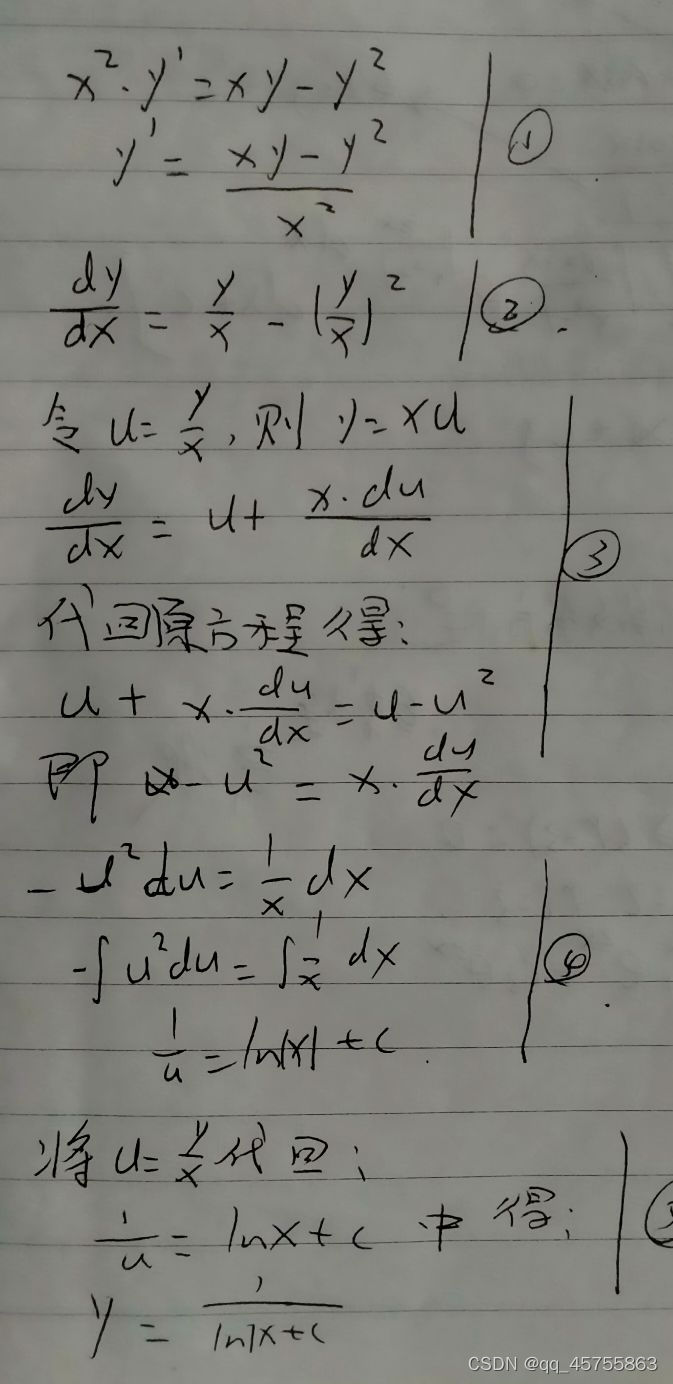 x²·y' = xy - y²
y' = (xy - y²)/x² ①
dy/dx = y/x - (y/x)² ② .
令 u = y/x, 则 y = xu
dy/dx = u + x·du/dx ③
代回原方程得:
u + x·du/dx = u - u²
即 - u² = x·du/dx
- u²du = 1/x dx
-∫u²du = ∫1/x dx ④
1/u = ln|x| + c .
将 u = y/x 代回:
1/u = lnx + c 中得:
y = 1/(ln|x+c)
CSDN @qq_45755863